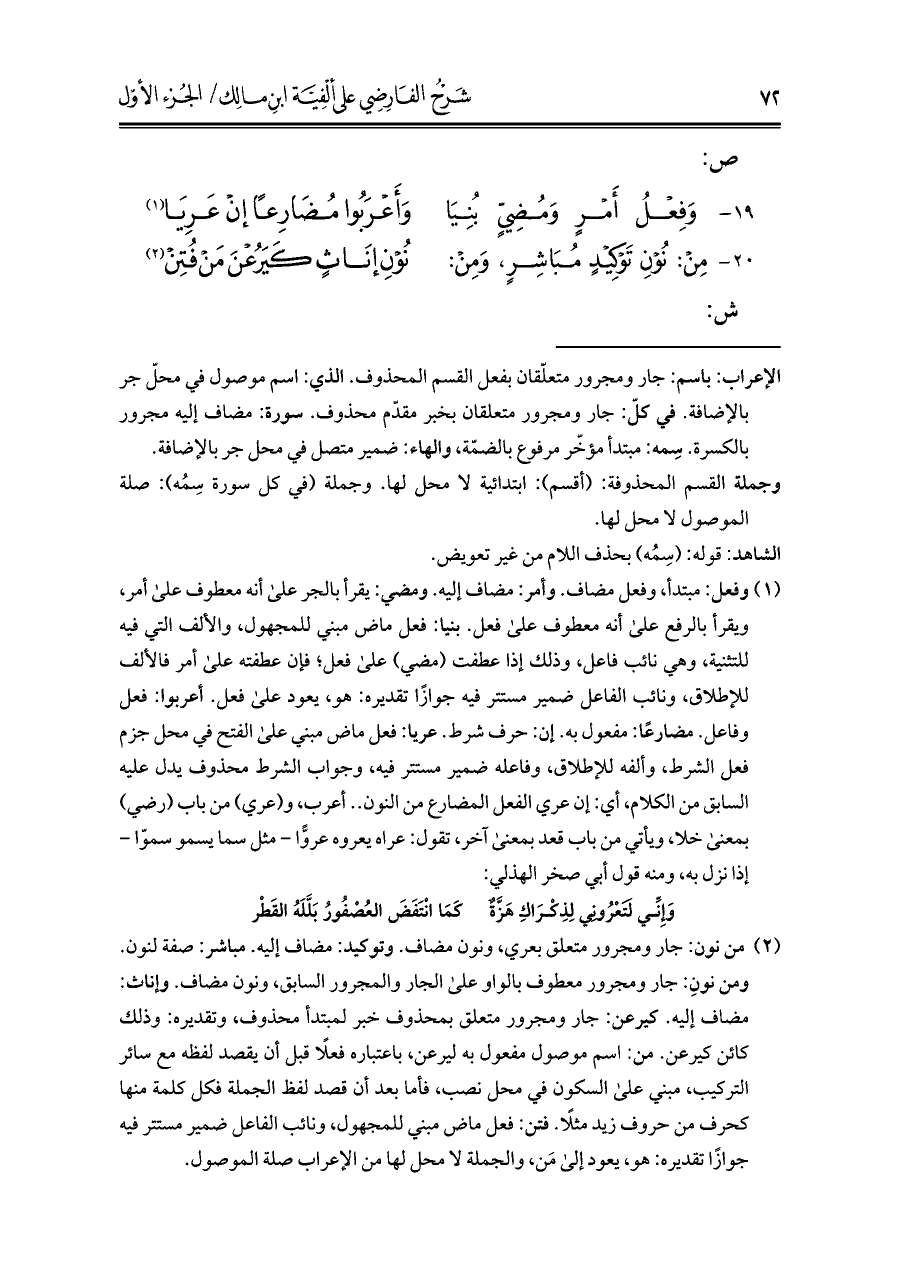 ٧٢ شَرْحُ الفَارِضِي على ألْفِيَّة ابنِ مالِك/ الجُزء الأوّل
ص:
١٩- وَفِعْلُ أَمْرٍ وَمُضِيٍّ بُنِيَا وَأَعْرَبُوا مُضَارِعًا إنْ عَرِيَا(١)
٢٠- مِنْ: نُوْنِ تَوْكِيْدٍ مُبَاشِرٍ، وَمِنْ: نُوْنِ إنَاثٍ كَيَرُعْنَ مَنْ فُتِنْ(٢)
ش:
الإعراب: باسم: جار ومجرور متعلّقان بفعل القسم المحذوف. الذي: اسم موصول في محلّ جر
بالإضافة. في كلّ: جار ومجرور متعلقان بخبر مقدّم محذوف. سورة: مضاف إليه مجرور
بالكسرة. سِمه: مبتدأ مؤخّر مرفوع بالضمّة، والهاء: ضمير متصل في محل جر بالإضافة.
وجملة القسم المحذوفة: (أقسم): ابتدائية لا محل لها. وجملة (في كل سورة سِمُه): صلة
الموصول لا محل لها.
الشاهد: قوله: (سِمُه) بحذف اللام من غير تعويض.
(١) وفعل: مبتدأ، وفعل مضاف. وأمر: مضاف إليه. ومضي: يقرأ بالجر علىٰ أنه معطوف علىٰ أمر،
ويقرأ بالرفع علىٰ أنه معطوف علىٰ فعل. بنيا: فعل ماض مبني للمجهول، والألف التي فيه
للتثنية، وهي نائب فاعل، وذلك إذا عطفت (مضي) علىٰ فعل؛ فإن عطفته علىٰ أمر فالألف
للإطلاق، ونائب الفاعل ضمير مستتر فيه جوازًا تقديره: هو، يعود علىٰ فعل. أعربوا: فعل
وفاعل. مضارعًا: مفعول به. إن: حرف شرط. عريا: فعل ماض مبني علىٰ الفتح في محل جزم
فعل الشرط، وألفه للإطلاق، وفاعله ضمير مستتر فيه، وجواب الشرط محذوف يدل عليه
السابق من الكلام، أي: إن عري الفعل المضارع من النون.. أعرب، و(عري) من باب (رضي)
بمعنىٰ خلا، ويأتي من باب قعد بمعنىٰ آخر، تقول: عراه يعروه عروًّا – مثل سما يسمو سموّا –
إذا نزل به، ومنه قول أبي صخر الهذلي:
وَإِنِّي لَتَعْرُونِي لِذِكْرَاكِ هَزَّةٌ كَمَا انْتَفَضَ العُصْفُورُ بَلَّلَهُ القَطْر
(٢) من نون: جار ومجرور متعلق بعري، ونون مضاف. وتوكيد: مضاف إليه. مباشر: صفة لنون.
ومن نونِ: جار ومجرور معطوف بالواو علىٰ الجار والمجرور السابق، ونون مضاف. وإناث:
مضاف إليه. كيرعن: جار ومجرور متعلق بمحذوف خبر لمبتدأ محذوف، وتقديره: وذلك
كائن كيرعن. من: اسم موصول مفعول به ليرعن، باعتباره فعلًا قبل أن يقصد لفظه مع سائر
التركيب، مبني علىٰ السكون في محل نصب، فأما بعد أن قصد لفظ الجملة فكل كلمة منها
كحرف من حروف زيد مثلًا. فتن: فعل ماض مبني للمجهول، ونائب الفاعل ضمير مستتر فيه
جوازًا تقديره: هو، يعود إلىٰ مَن، والجملة لا محل لها من الإعراب صلة الموصول.